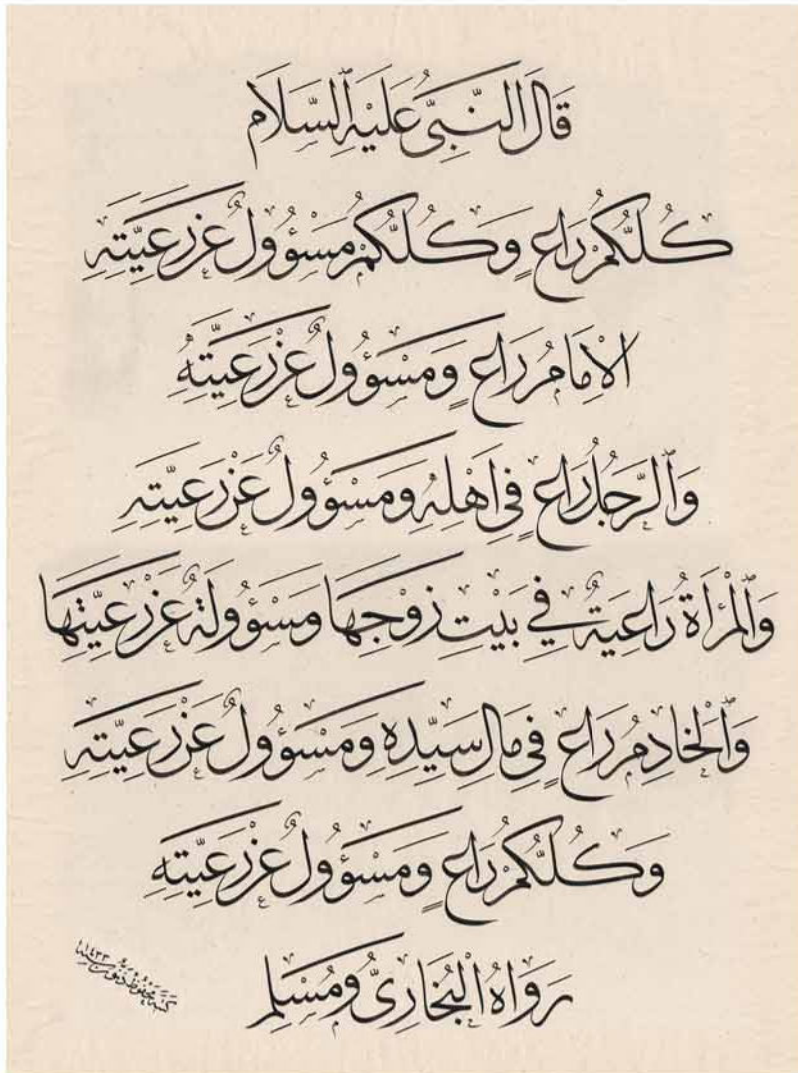 قَالَ النَّبِيُّ عَلَيْهِ ٱلسَّلَام
كُلُّكُمْ رَاعٍ وَكُلُّكُمْ مَسْؤُولٌ عَنْ رَعِيَّتِهِ
الْإِمَامُ رَاعٍ وَمَسْؤُولٌ عَنْ رَعِيَّتِهِ
وَٱلرَّجُلُ رَاعٍ فِي اَهْلِهِ وَمَسْؤُولٌ عَنْ رَعِيَّتِهِ
وَٱلْمَرْاَةُ رَاعِيَةٌ فِي بَيْتِ زَوْجِهَا وَمَسْؤُولَةٌ عَنْ رَعِيَّتِهَا
وَٱلْخَادِمُ رَاعٍ فِي مَالِ سَيِّدِهِ وَمَسْؤُولٌ عَنْ رَعِيَّتِهِ
وَكُلُّكُمْ رَاعٍ وَمَسْؤُولٌ عَنْ رَعِيَّتِهِ
رَوَاهُ الْبُخَارِيُّ وَمُسْلِم
١٤٣٣